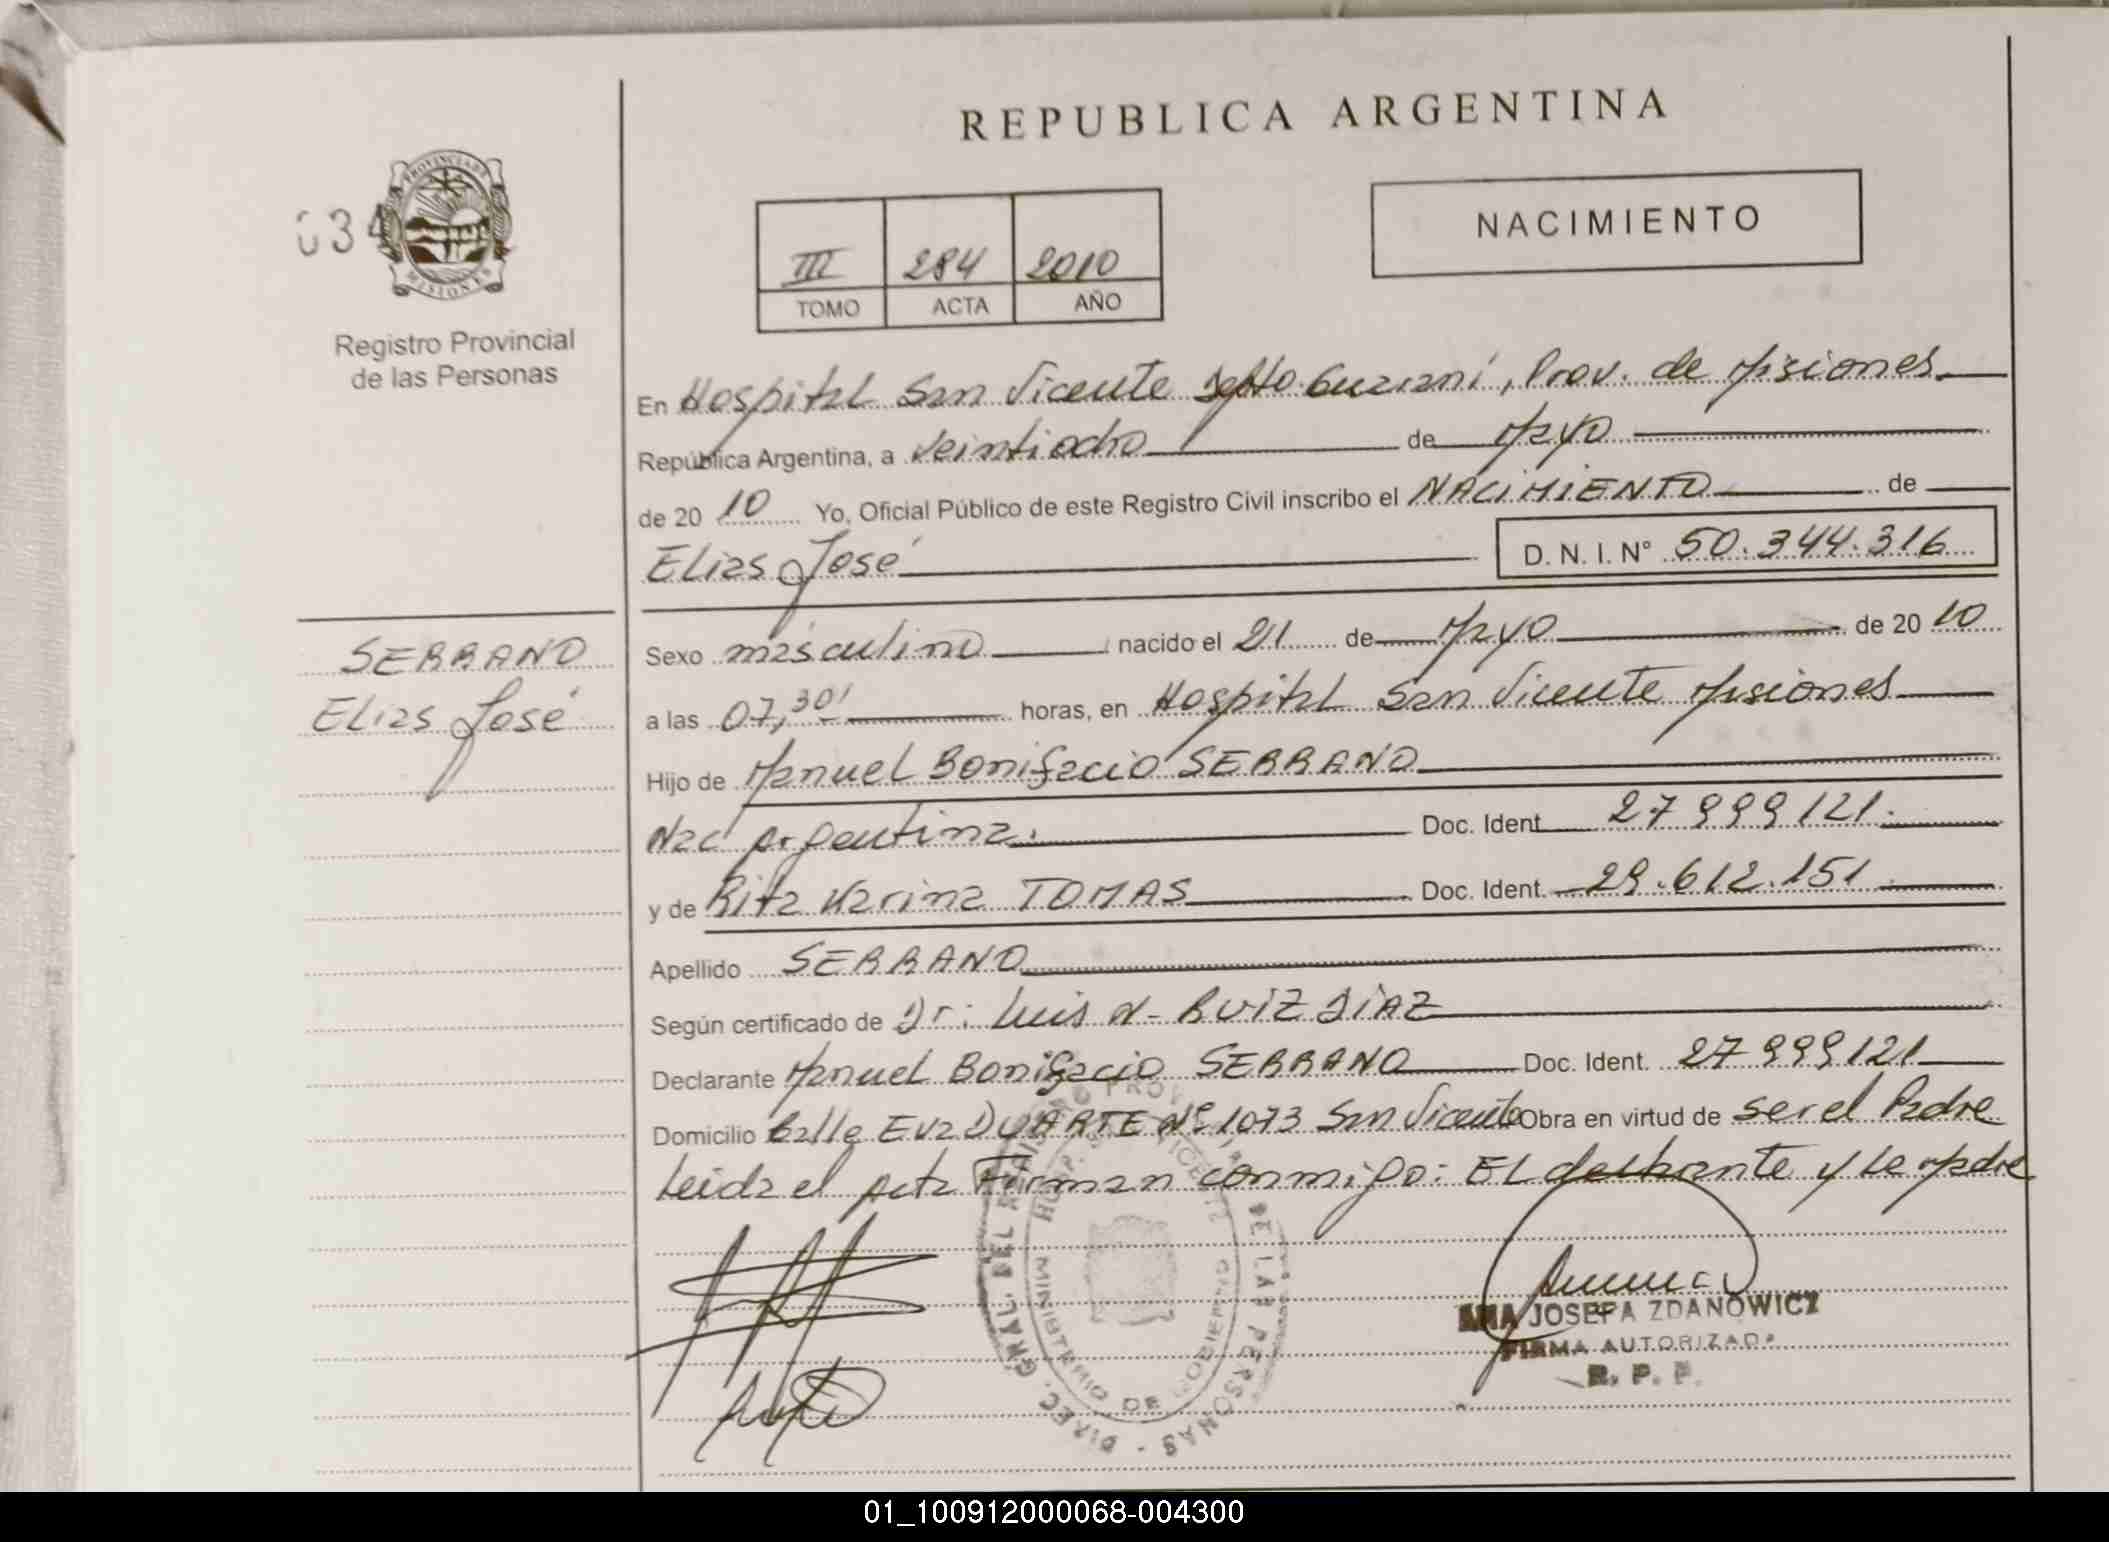 REPUBLICA ARGENTINA
034
PROVINCIA DE
MISIONES
Registro Provincial
de las Personas
III 284 2010
TOMO ACTA AÑO
NACIMIENTO
En Hospital San Vicente Depto. Guaraní, Prov. de Misiones
República Argentina, a Veintiocho de Mayo
de 20 10 Yo, Oficial Público de este Registro Civil inscribo el NACIMIENTO de
Elias José D. N. I. N° 50.344.316
SERRANO
Elias José
Sexo masculino nacido el 21 de Mayo de 20 10
a las 07,30' horas, en Hospital San Vicente Misiones
Hijo de Manuel Bonifacio SERRANO
Nac Argentina. Doc. Ident. 27999121.
y de Rita Karina TOMAS Doc. Ident. 29.612.151
Apellido SERRANO
Según certificado de Dr: Luis N- RUIZ DIAZ
Declarante Manuel Bonifacio SERRANO Doc. Ident. 27999121
Domicilio Calle Eva DUARTE Nº 1073 San Vicente Obra en virtud de ser el Padre
Leida el Acta Firman conmigo: EL declarante y la Madre
DIREC. GRAL. DEL REGISTRO PROV. DE LAS PERSONAS
HOSP.
MINISTERIO DE GOBIERNO
ANA JOSEFA ZDANOWICZ
FIRMA AUTORIZADA
R. P. P.
01_100912000068-004300